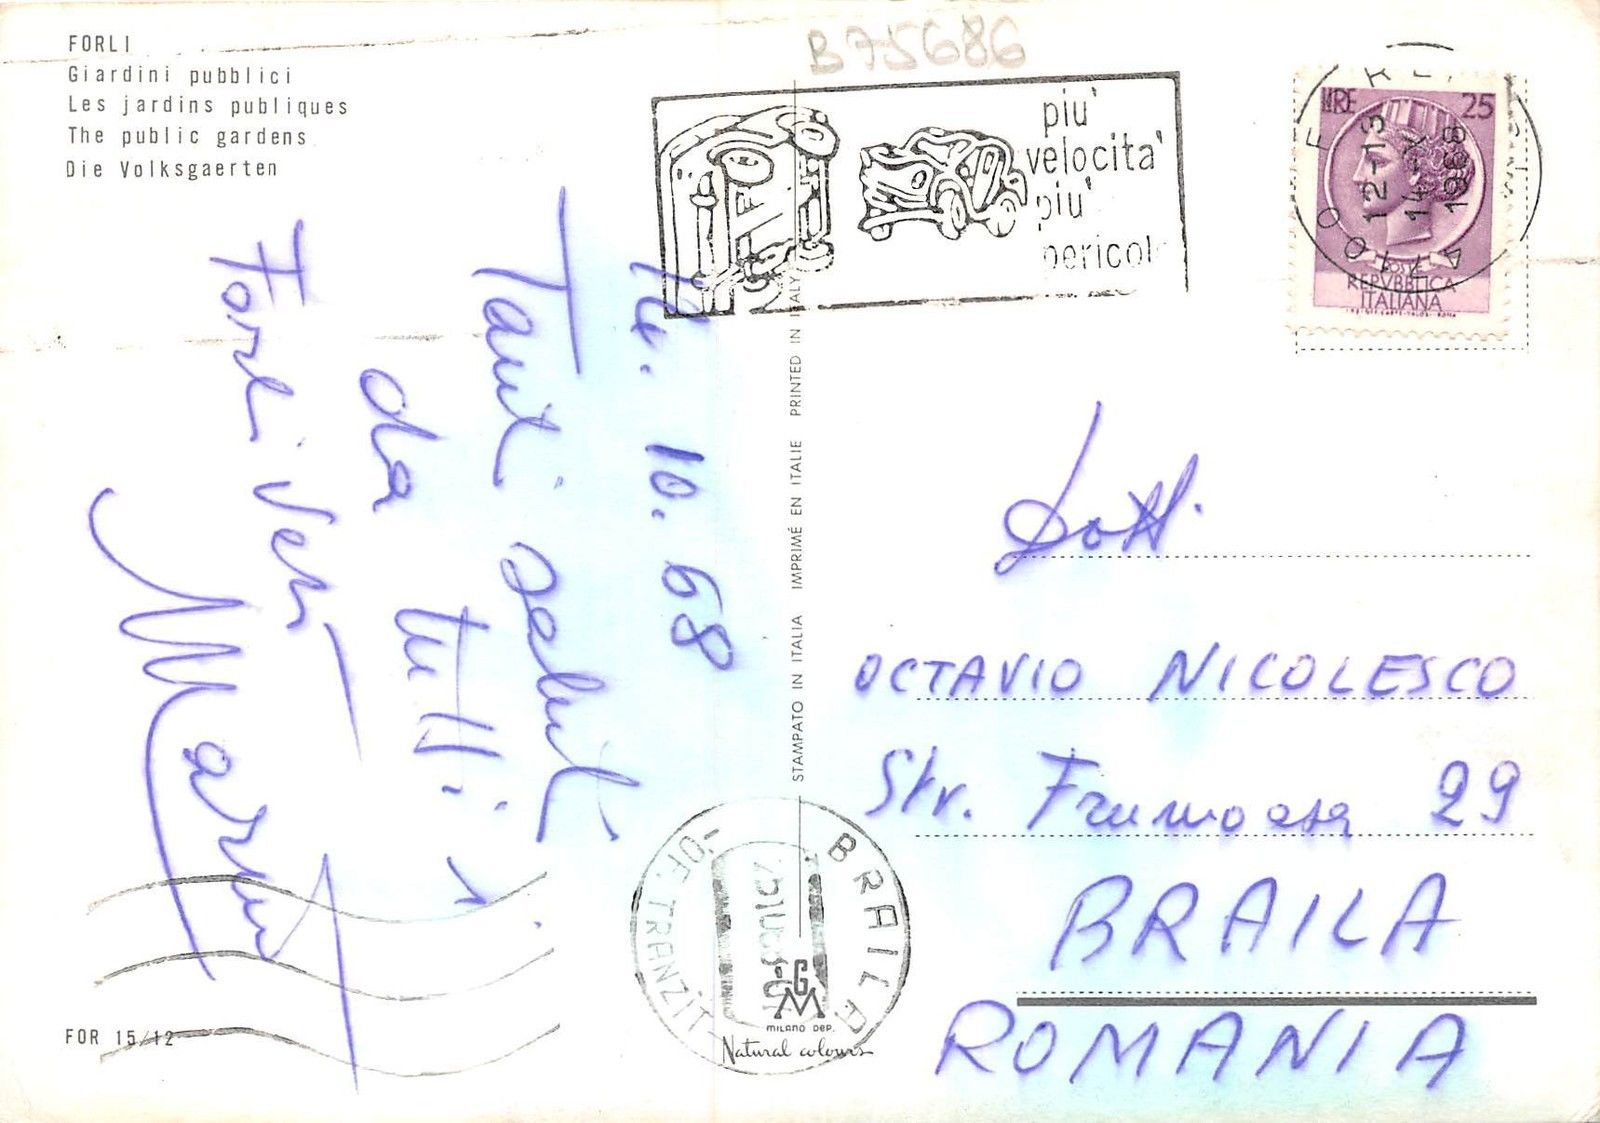 FORLI
Giardini pubblici
Les jardins publiques
The public gardens
Die Volksgaerten
B75686
più
velocità
più
pericol
LIRE 25
POSTE
REPVBBLICA
ITALIANA
12-13
14 X
1968
14.10.68
Tanti saluti
da tutti
STAMPATO IN ITALIA IMPRIMÉ EN ITALIE PRINTED IN ITALY
Dott.
OCTAVIO NICOLESCO
Str. Frumoasa 29
BRAILA
ROMANIA
BRAILA
OF. TRANZIT
GM
MILANO DEP.
Natural colours
FOR 15/12